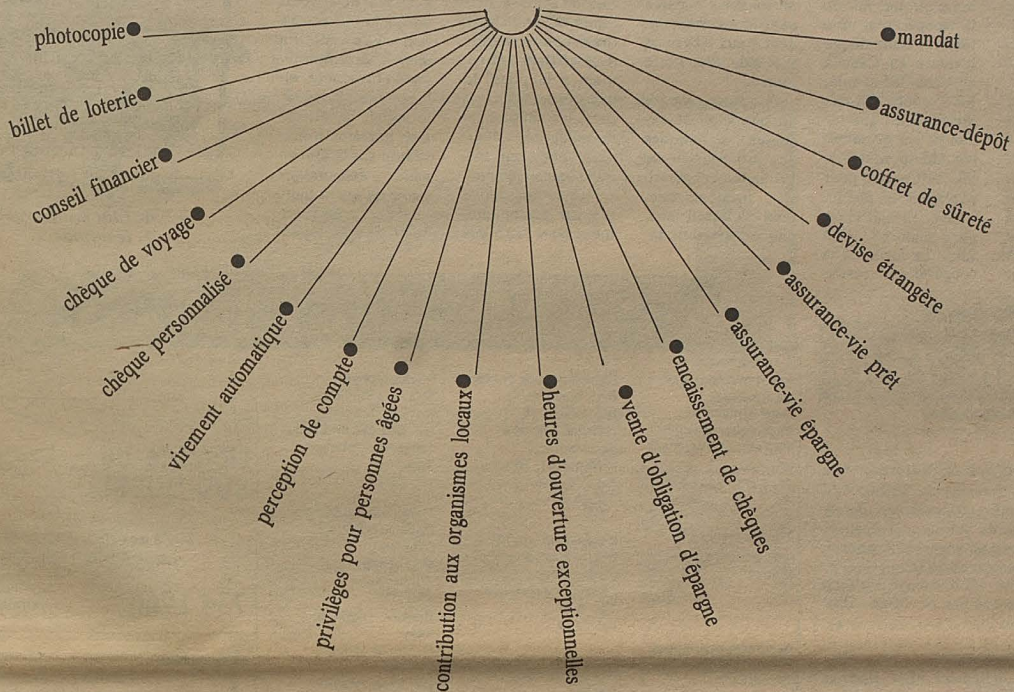 photocopie
billet de loterie
conseil financier
chèque de voyage
chèque personnalisé
virement automatique
perception de compte
privilèges pour personnes âgées
contribution aux organismes locaux
heures d'ouverture exceptionnelles
vente d'obligation d'épargne
encaissement de chèques
assurance-vie épargne
assurance-vie prêt
devise étrangère
coffret de sûreté
assurance-dépôt
mandat